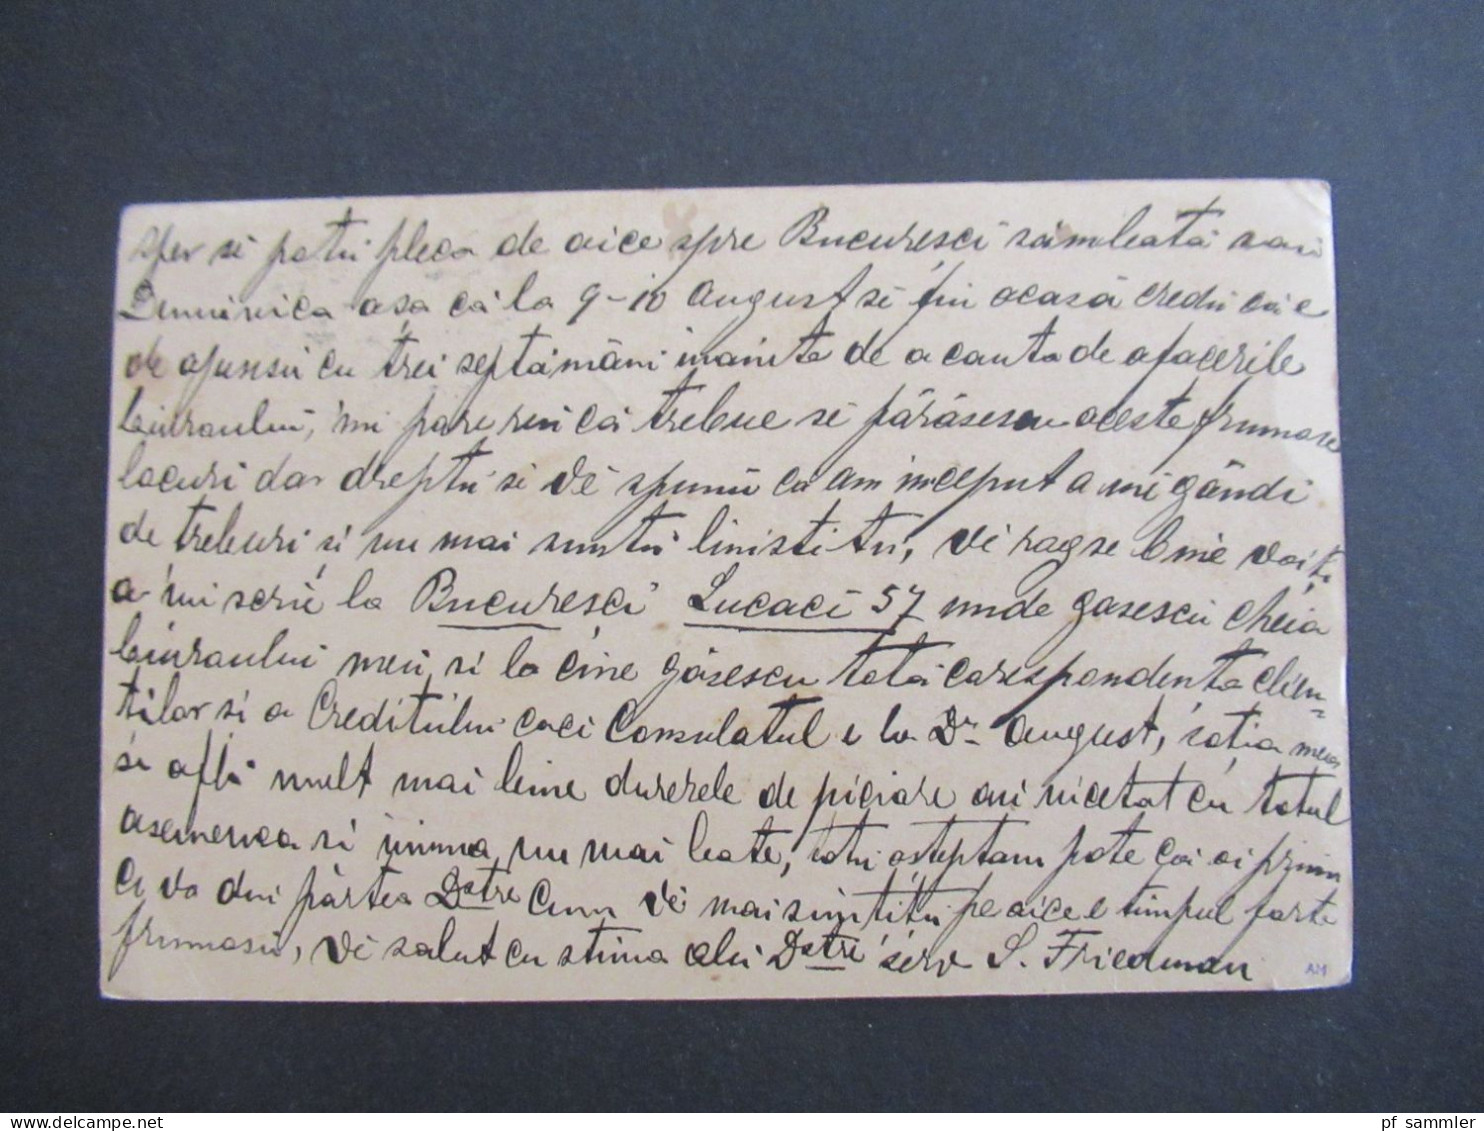 sper si potŭ pleca de aice spre Bucuresci sâmbată sau
Duminica asa că la 9-10 august si fiu acasă credu că e
de ajunsŭ cu trei septămâni inainte de a cauta de afacerile
biuraului, 'mi pare reu că trebue se părăsescu aceste frumose
locuri dar dreptŭ si vĕ spunŭ ca am inceput a mi gândi
de treburi si nu mai suntŭ linistitu, vĕ rog se bine voiti
a 'mi scrie la Bucuresci Lucaci 57 unde gasescu cheia
biuraului meu si la cine găsescu totă corespondenta clien=
tilor si a Creditului caci Consulatul e la Dr. August, sotia mea
se aflĭ mult mai bine durerele de picioare au incetat cu totul
asemenea si inima nu mai bate, totu asteptam pote că oi primi
ce va din pârtea Dstre cum vĕ mai simtiti pe aice e timpul forte
frumosu, Vĕ salut cu stima alu Dstre serv S. Friedman
AM
pf sammler